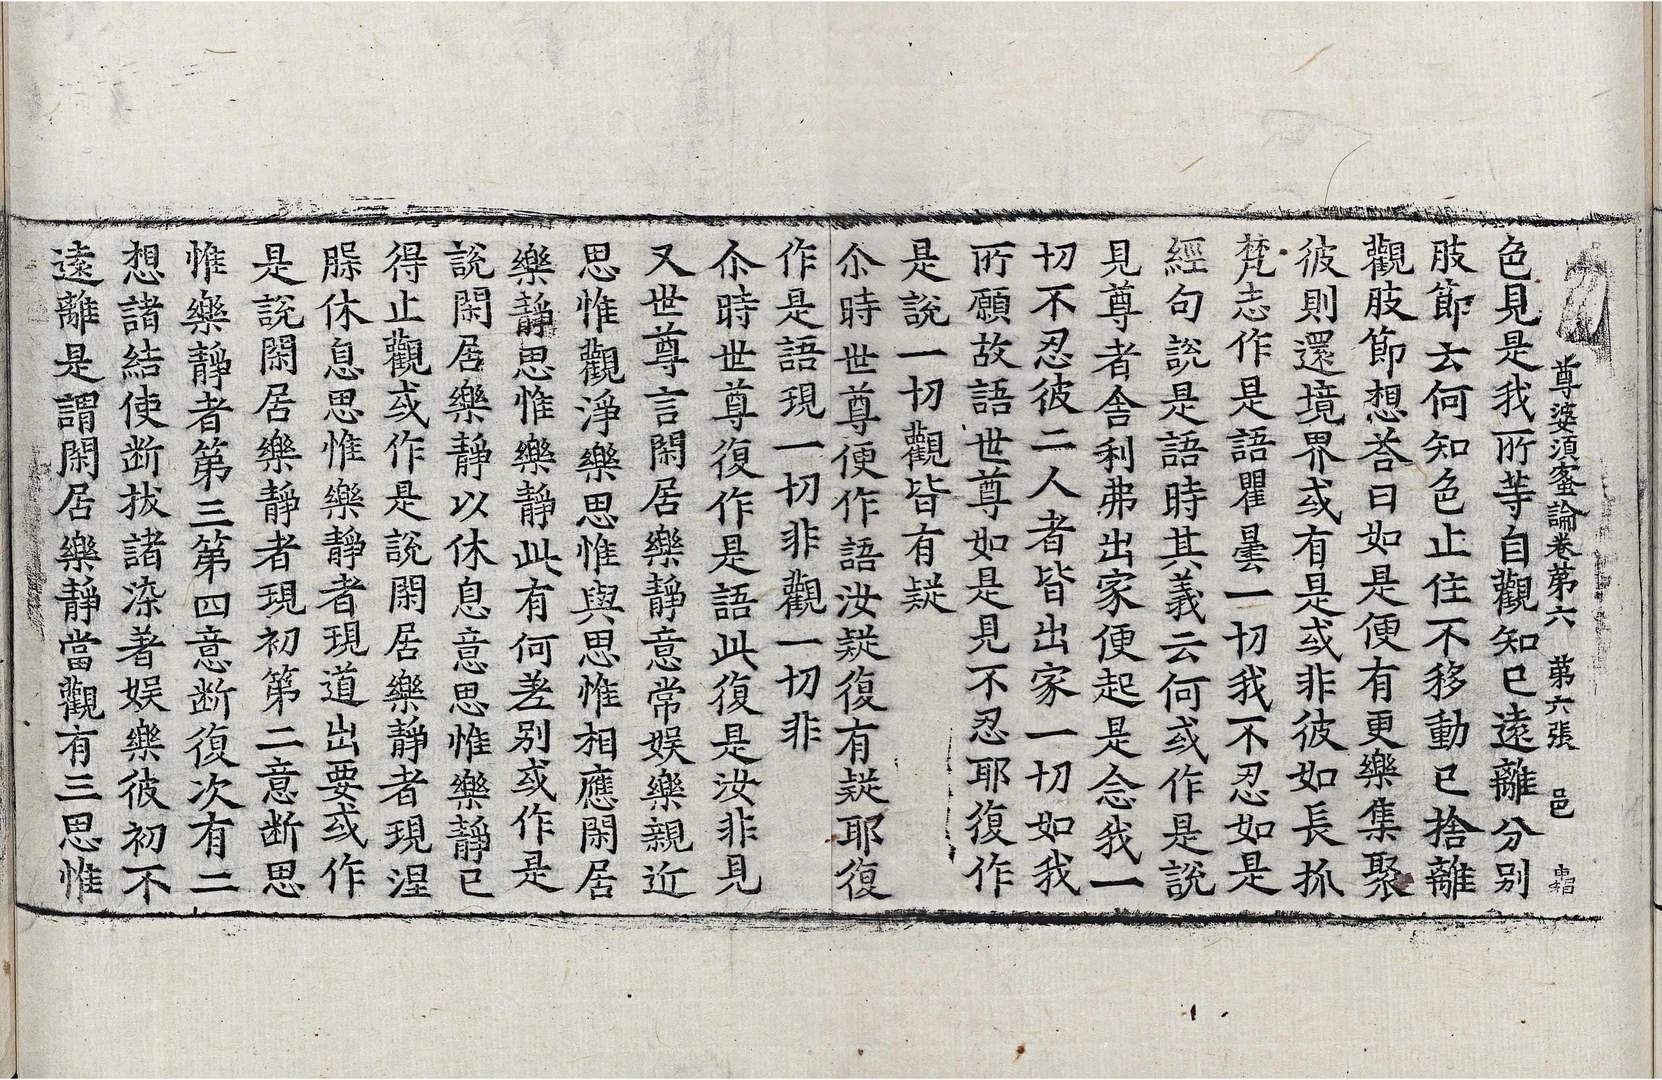 尊婆須蜜論卷第六　第六張　邑
色見是我所等自觀知已遠離分別
肢節云何知色止住不移動已捨離
觀肢節想荅曰如是便有更樂集聚
彼則還境界或有是或非彼如長抓
梵志作是語瞿曇一切我不忍如是
經句說是語時其義云何或作是說
見尊者舍利弗出家便起是念我一
切不忍彼二人者皆出家一切如我
所願故語世尊如是見不忍耶復作
是說一切觀皆有疑
尒時世尊便作語汝疑復有疑耶復
作是語現一切非觀一切非
尒時世尊復作是語此復是汝非見
又世尊言閑居樂靜意常娛樂親近
思惟觀淨樂思惟與思惟相應閑居
樂靜思惟樂靜此有何差别或作是
說閑居樂靜以休息意思惟樂靜已
得止觀或作是說閑居樂靜者現涅
脲休息思惟樂靜者現道出要或作
是說閑居樂靜者現初第二意断思
惟樂靜者第三第四意断復次有二
想諸結使断拔諸染著娛樂彼初不
遠離是謂閑居樂靜當觀有三思惟